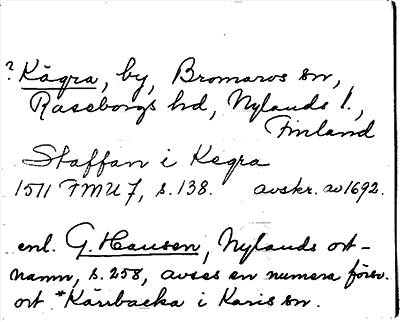 ? Kägra, by, Bromarvs sn,
Raseborgs hd, Nylands l.,
Finland
Staffan i Kegra
1511 FMU 7, s. 138. avskr. av 1692.
enl. G. Hausen, Nylands ort-
namn, s. 258, avses en numera försv.
ort *Käribacka i Karis sn.